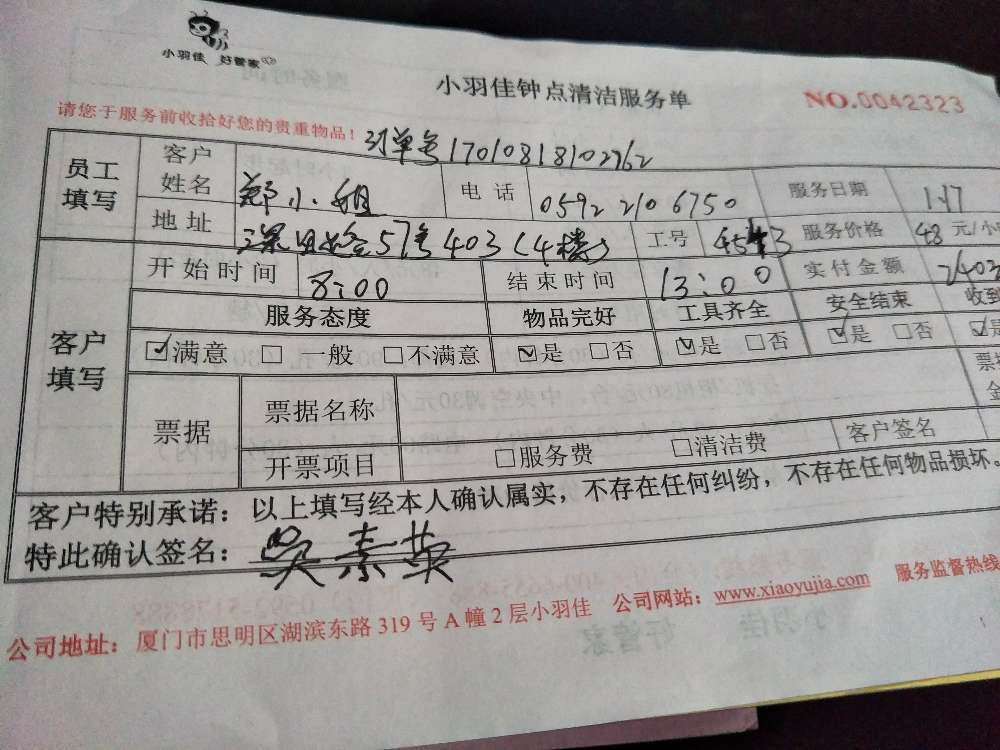 小羽佳 好管家
小羽佳钟点清洁服务单
NO.0042323
请您于服务前收拾好您的贵重物品！ 订单号17010818102762
员工填写 客户姓名 郑小姐 电话 0592 2106750 服务日期 1.17
地址 57号403(4楼) 工号 服务价格 48元/小
客户填写 开始时间 8:00 结束时间 13:00 实付金额
服务态度 物品完好 工具齐全 安全结束 收到
☑满意 □一般 □不满意 ☑是 □否 ☑是 □否 ☑是 □否 ☑是
票据 票据名称
开票项目 □服务费 □清洁费 客户签名
客户特别承诺：以上填写经本人确认属实，不存在任何纠纷，不存在任何物品损坏。
特此确认签名：吴素英
公司地址：厦门市思明区湖滨东路319号A幢2层小羽佳 公司网站：www.xiaoyujia.com 服务监督热线